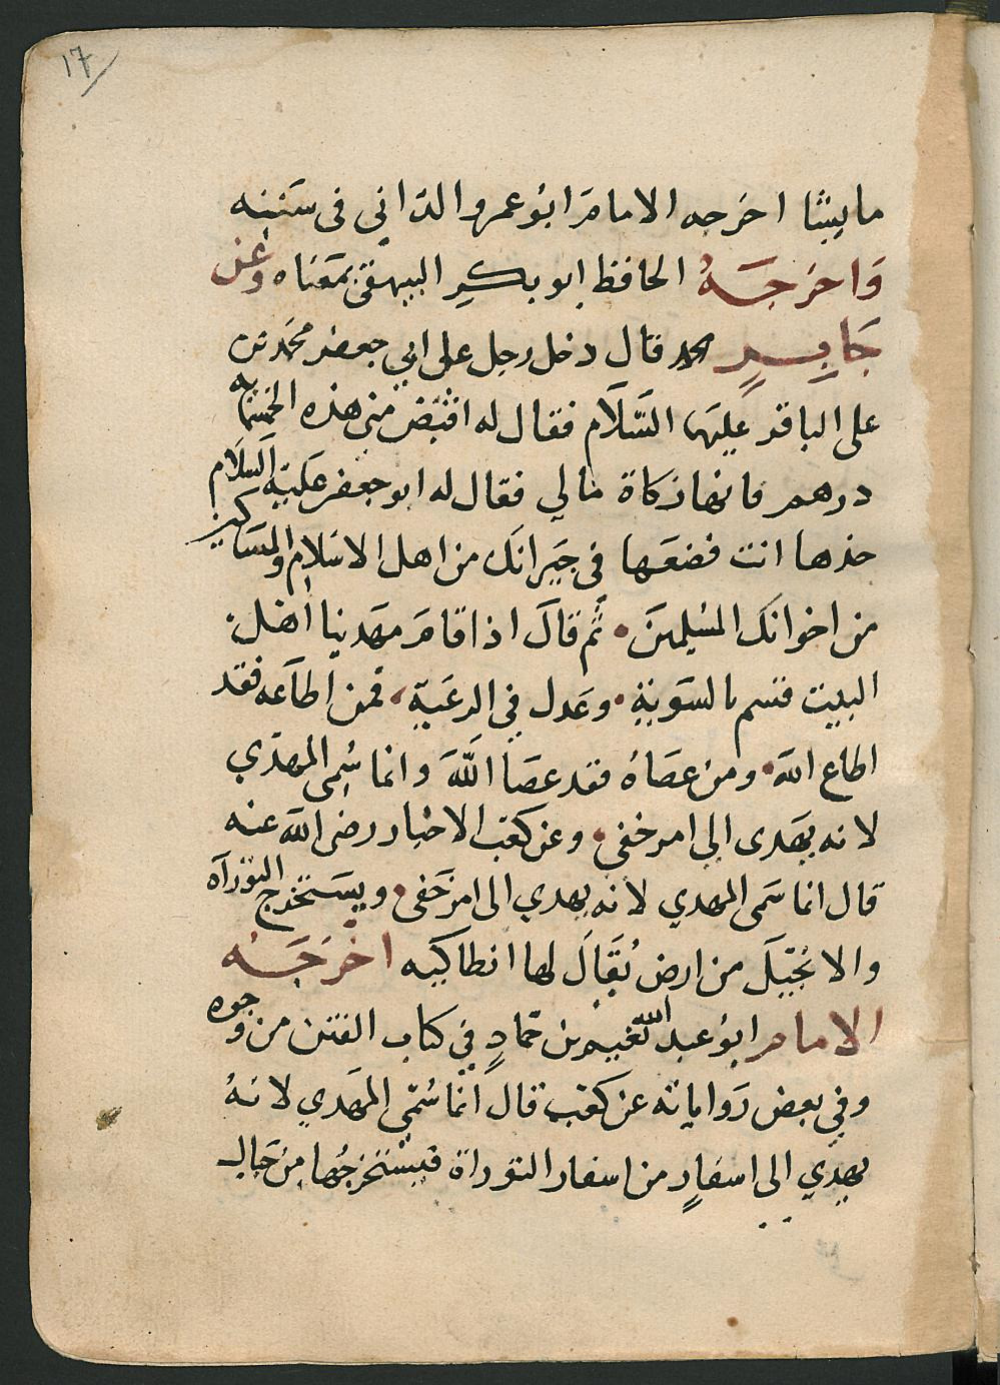 ١٧
ما يشا اخرجه الامام ابو عمرو الداني في سننه
واخرجه الحافظ ابو بكر البيهقي بمعناه وعن
جابر قال دخل رجل على ابي جعفر محمد بن
على الباقر عليهما السلام فقال له اقبض مني هذه الخمسمايه
درهم فانها زكاة مالي فقال له ابو جعفر عليه السلام
خذها انت فضعها في جيرانك من اهل الاسلام والمساكين
من اخوانك المسلمين • ثم قال اذا قام مهدينا اهل
البيت قسم بالسوية • وعدل في الرعية • فمن اطاعه فقد
اطاع الله • ومن عصاه فقد عصا الله وانما سمى المهدي
لانه يهدى الى امر خفي • وعن كعب الاحبار رضى الله عنه
قال انما سمى المهدي لانه يهدي الى امر خفى • ويستخرج التوراة
والانجيل من ارض يقال لها انطاكيه اخرجه
الامام ابو عبد الله نعيم بن حماد في كتاب الفتن من وجوه
وفي بعض رواياته عن كعب قال انما سمى المهدي لانه
يهدي الى اسفار من اسفار التوراة فيستخرجها من جبال